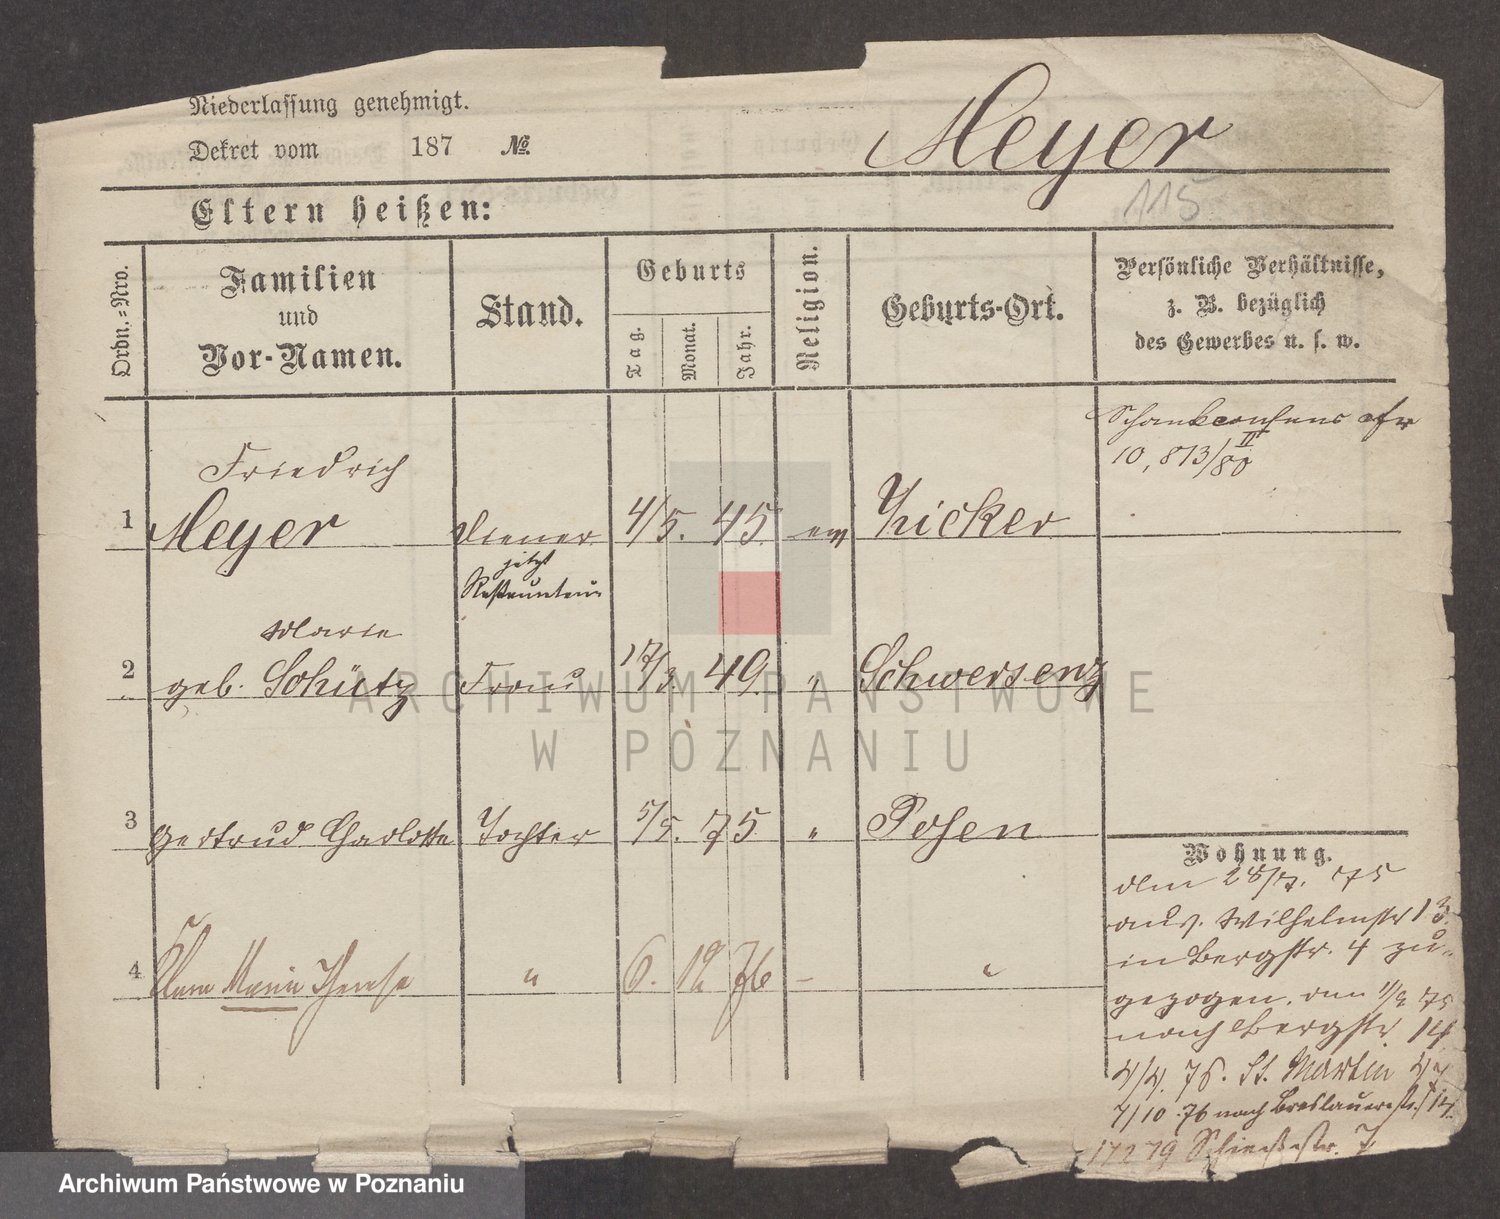 Niederlassung genehmigt.
Dekret vom 187 №.
Meyer
115
Eltern heißen:
Ordn.-Nro.
Familien
und
Vor-Namen.
Stand.
Geburts
Tag.
Monat.
Jahr.
Religion.
Geburts-Ort.
Persönliche Verhältnisse,
z. B. bezüglich
des Gewerbes u. s. w.
Schankconsens
10,873/80 II
Friedrich
1 Meyer Diener 4/5. 45. ev Zicker
jetzt
Restaurateur
Marie
2 geb. Schütz Frau 17/3. 49. " Schwersenz
3 Gertrud Charlotte Tochter 5/5. 75 " Posen
4 Clara Maria Therese " 6. 12 76 - "
Wohnung.
den 28/7. 75
aus. Wilhelmstr 13
in Bergstr. 4 zu-
gezogen. den 75
nach Bergstr 14
4/4. 76. St. Martin
7/10. 76 nach Breslauerstr. 14
79 Schießstr. 7
ARCHIWUM PAŃSTWOWE
W POZNANIU
Archiwum Państwowe w Poznaniu